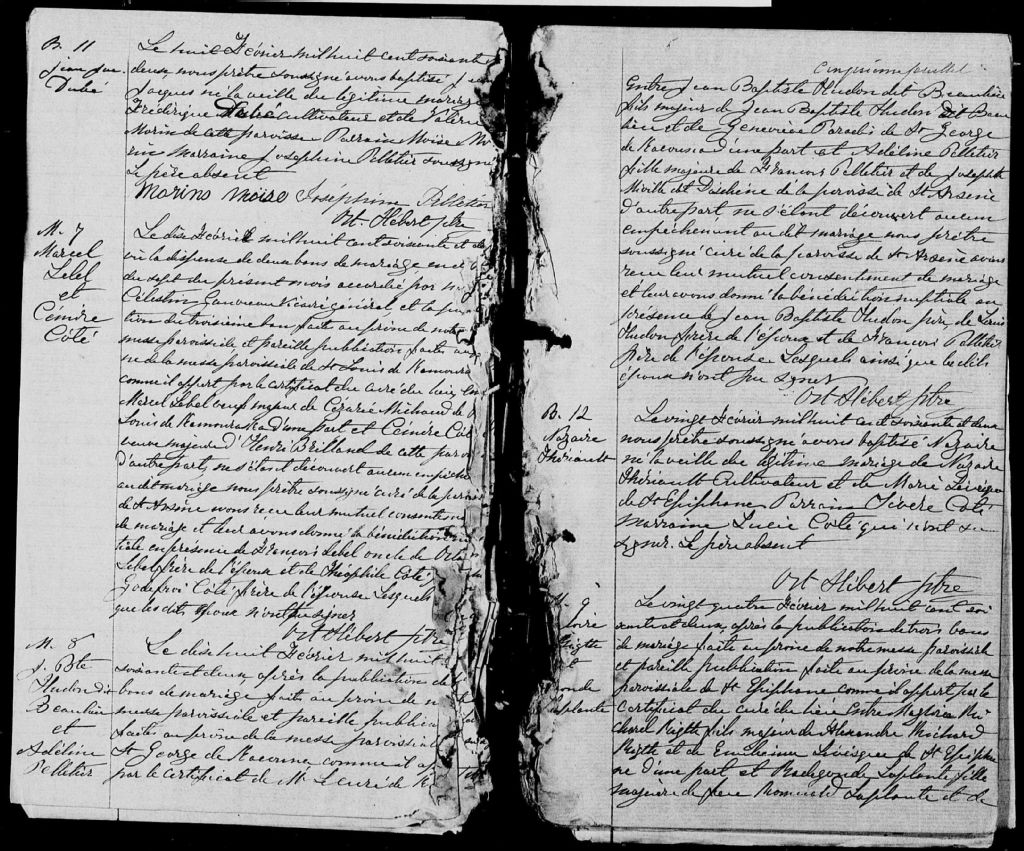 B. 11
Jean Jac.
Dubé
Le huit Février mil huit cent soixante
deux, nous prêtre soussigné avons baptisé Jean
Jacques né la veille du légitime mariage
Frédérique Dubé Cultivateur et de Valérie
Morin de cette paroisse Parrain Moïse Mo
rin marraine Joséphine Pelletier soussignés
Le père absent
Marino Moise Joséphine Pelletier
Ort. Hébert ptre
M. 7
Marcel
Lebel
et
Cémire
Côté
Le dix Février mil huit cent soixante et deux
vû la dispense de deux bans de mariage, en
du sept du présent mois accordée par M
Célestin Gauvreau Vicaire général, et la pu
tion du troisième ban faite au prône de notre
messe paroissiale et pareille publication faite au
ne de la messe paroissiale de St Louis de Kamoura
comme il appert par le certificat du curé du lieu, En
Marcel Lebel veuf majeur de Césarie Michaud de St
Louis de Kamouraska d'une part et Cémire Côté
veuve majeure d'Henri Brilland de cette paroi
d'autre part, ne s'étant découvert aucun empêche
au dit mariage nous prêtre soussigné curé de la paroi
de St Arsène avons reçu leur mutuel consentement
de mariage et leur avons donné la bénédiction nup
tiale en présence de François Lebel oncle de
Lebel frère de l'époux et de Théophile Côté,
Godefroi Côté, frère de l'épouse Lesquels
que les dits époux n'ont su signer
Ort Hébert ptre
M. 8
J. Bte
Hudon dit
Beaulieu
et
Adéline
Pelletier
Le dix huit Février mil huit
soixante et deux, après la publication de
bans de mariage faite au prône de n
messe paroissiale et pareille publica
faite au prône de la messe paroissiale
St George de Kacouna comme il ap
par le certificat de Mr Le curé de K
cinquième feuillet
Entre Jean Baptiste Hudon dit Beaulieu
fils majeur de Jean Baptiste Hudon dit Beau
lieu et de Geneviève Paradis de St George
de Kacouna d'une part et Adéline Pelletier
fille majeure de François Pelletier et de Josephte
Miville dit Deschène de la paroisse de St Arsène
d'autre part, ne s'étant découvert aucun
empêchement au dit mariage nous prêtre
soussigné curé de la paroisse de St Arsène avons
reçu leur mutuel consentement de mariage
et leur avons donné la bénédiction nuptiale en
présence de Jean Baptiste Hudon père, de Louis
Hudon frère de l'époux et de François Pelletier
Père de l'épouse Lesquels ainsi que les dits
époux n'ont su signer
Ort Hébert ptre
B. 12
Nazaire
Thériault
Le vingt Février mil huit cent soixante et deux
nous prêtre soussigné avons baptisé Nazaire
né la veille du légitime mariage de Nazaire
Thériault Cultivateur et de Marie Lévêque
de St Epiphane Parrain Sévère Côté
Marraine Lucie Côté qui n'ont su
signer. Le père absent
Ort Hébert ptre
M. 9
oire
igtte
t
onde
aplante
Le vingt quatre Février mil huit cent soi
xante et deux, après la publication de trois bans
de mariage faite au prône de notre messe paroissiale
et pareille publication faite au prône de la messe
paroissiale de St Epiphane comme il appert par le
certificat du curé du lieu Entre Magloire Mi
chard Rigtte fils majeur de Alexandre Michard
Rigtte et de Emilienne Lévesque de St Epipha
ne d'une part et Radegonde Laplante fille
majeure de feu Romuald Laplante et de